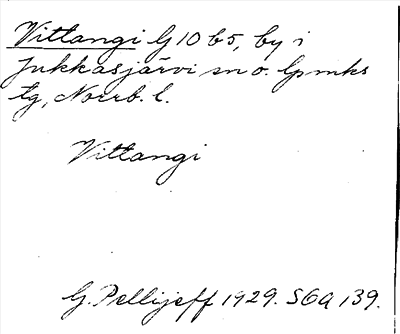 Vittangi G 10 b5, by i
Jukkasjärvi sn o. lpmks
tg, Norrb. l.
Vittangi
G. Pellijeff 1929. SGA 139.